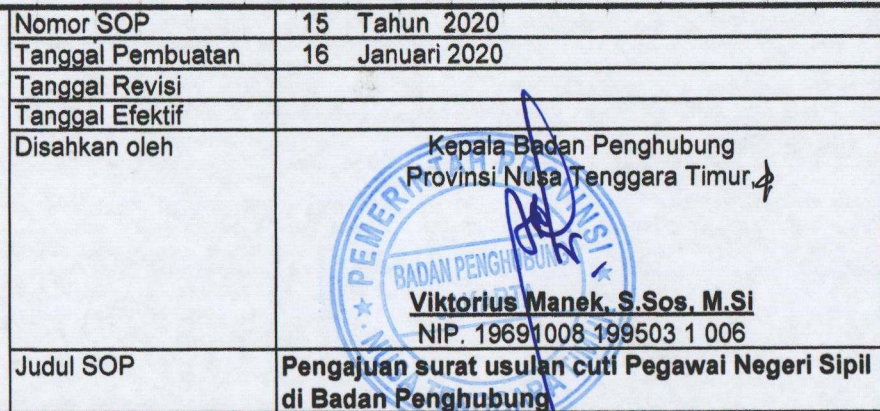 Nomor SOP 15 Tahun 2020
Tanggal Pembuatan 16 Januari 2020
Tanggal Revisi
Tanggal Efektif
Disahkan oleh Kepala Badan Penghubung
Provinsi Nusa Tenggara Timur,
PEMERINTAH PROVINSI
BADAN PENGHUBUNG
JAKARTA
NUSA TENGGARA TIMUR
Viktorius Manek, S.Sos, M.Si
NIP. 19691008 199503 1 006
Judul SOP Pengajuan surat usulan cuti Pegawai Negeri Sipil
di Badan Penghubung